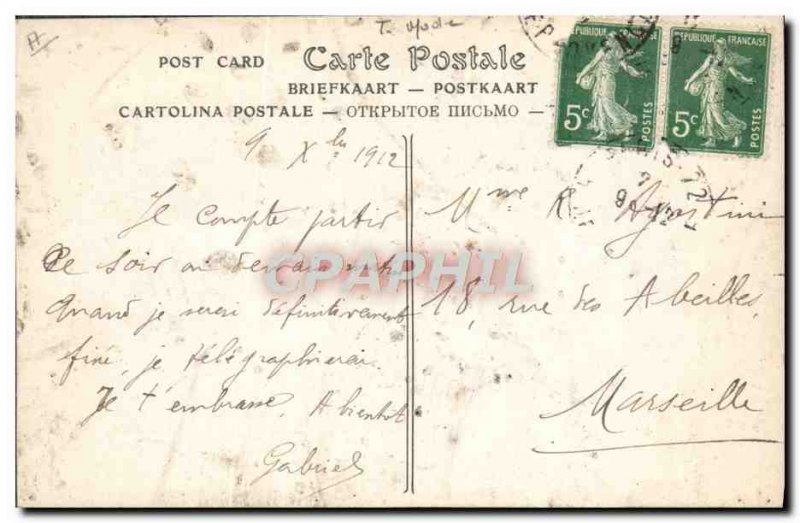 T. Mode
A
POST CARD
Carte Postale
BRIEFKAART — POSTKAART
CARTOLINA POSTALE — ОТКРЫТОЕ ПИСЬМО —
RÉPUBLIQUE FRANÇAISE
5c
POSTES
RÉPUBLIQUE FRANÇAISE
5c
POSTES
9 Xbre 1912
Je compte partir
Ce soir ou demain matin
Quand je serai définitivement
fixé, je télégraphierai.
Je t'embrasse. A bientot
Gabriel
Mme R Agostini
18, rue des Abeilles,
Marseille
CPAPHIL